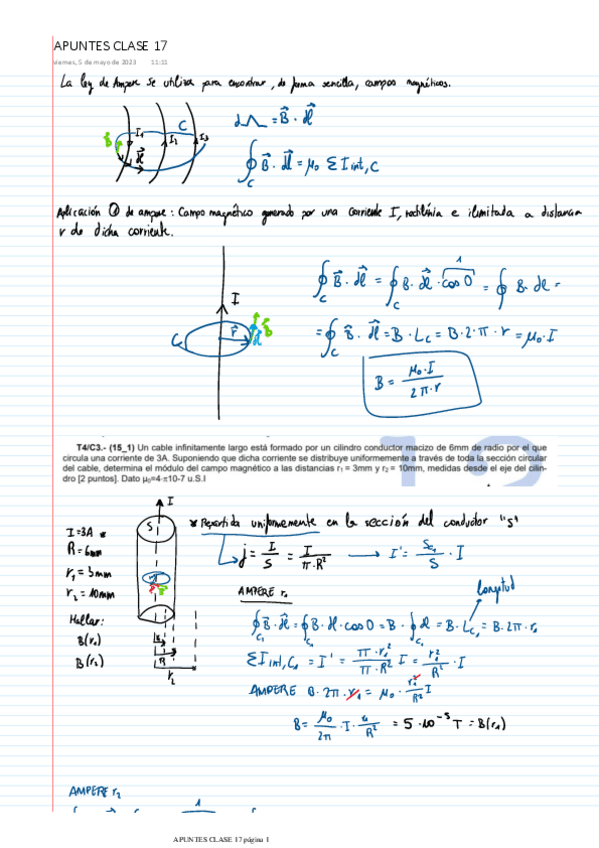 APUNTES CLASE 17
viernes, 5 de mayo de 2023 11:11
La ley de Ampere se utiliza para encontrar, de forma sencilla, campos magnéticos.
I₁ I₂ I₃ C
B⃗ dl⃗
dΛ = B⃗ · dl⃗
∮_C B⃗ · dl⃗ = μ₀ Σ I int, C
Aplicación ① de ampere: Campo magnético generado por una corriente I, rectilínea e ilimitada a distancia
r de dicha corriente.
I
C r⃗ dl⃗ B⃗
∮_C B⃗ · dl⃗ = ∮_C B⃗ · dl⃗ · cos 0 = ∮_C B · dl =
1
= ∮_C B⃗ · dl⃗ = B · L_C = B · 2 · π · r = μ₀ · I
B = μ₀ · I / 2π · r
T4/C3.- (15_1) Un cable infinitamente largo está formado por un cilindro conductor macizo de 6mm de radio por el que
circula una corriente de 3A. Suponiendo que dicha corriente se distribuye uniformemente a través de toda la sección circular
del cable, determina el módulo del campo magnético a las distancias r₁ = 3mm y r₂ = 10mm, medidas desde el eje del cilin-
dro [2 puntos]. Dato μ₀=4·π10-7 u.S.I
I
S
I=3A *
R=6mm
r₁=3mm
r₂=10mm
Hallar:
B(r₁)
B(r₂)
r₁
R
r₂
* Repartida uniformemente en la sección del conductor "S"
j = I/S = I/π·R² → I' = S_C₁/S · I
AMPERE r₁
longitud
∮_C₁ B⃗ · dl⃗ = ∮_C₁ B · dl · cos 0 = B · ∮_C₁ dl = B · L_C₁ = B · 2π · r₁
Σ I int, C₁ = I' = π · r₁²/π · R² I = r₁²/R² · I
AMPERE B · 2π · r₁ = μ₀ · r₁²/R² I
B = μ₀/2π · I · r₁/R² = 5 · 10⁻⁵ T = B(r₁)
AMPERE r₂
1
APUNTES CLASE 17 página 1